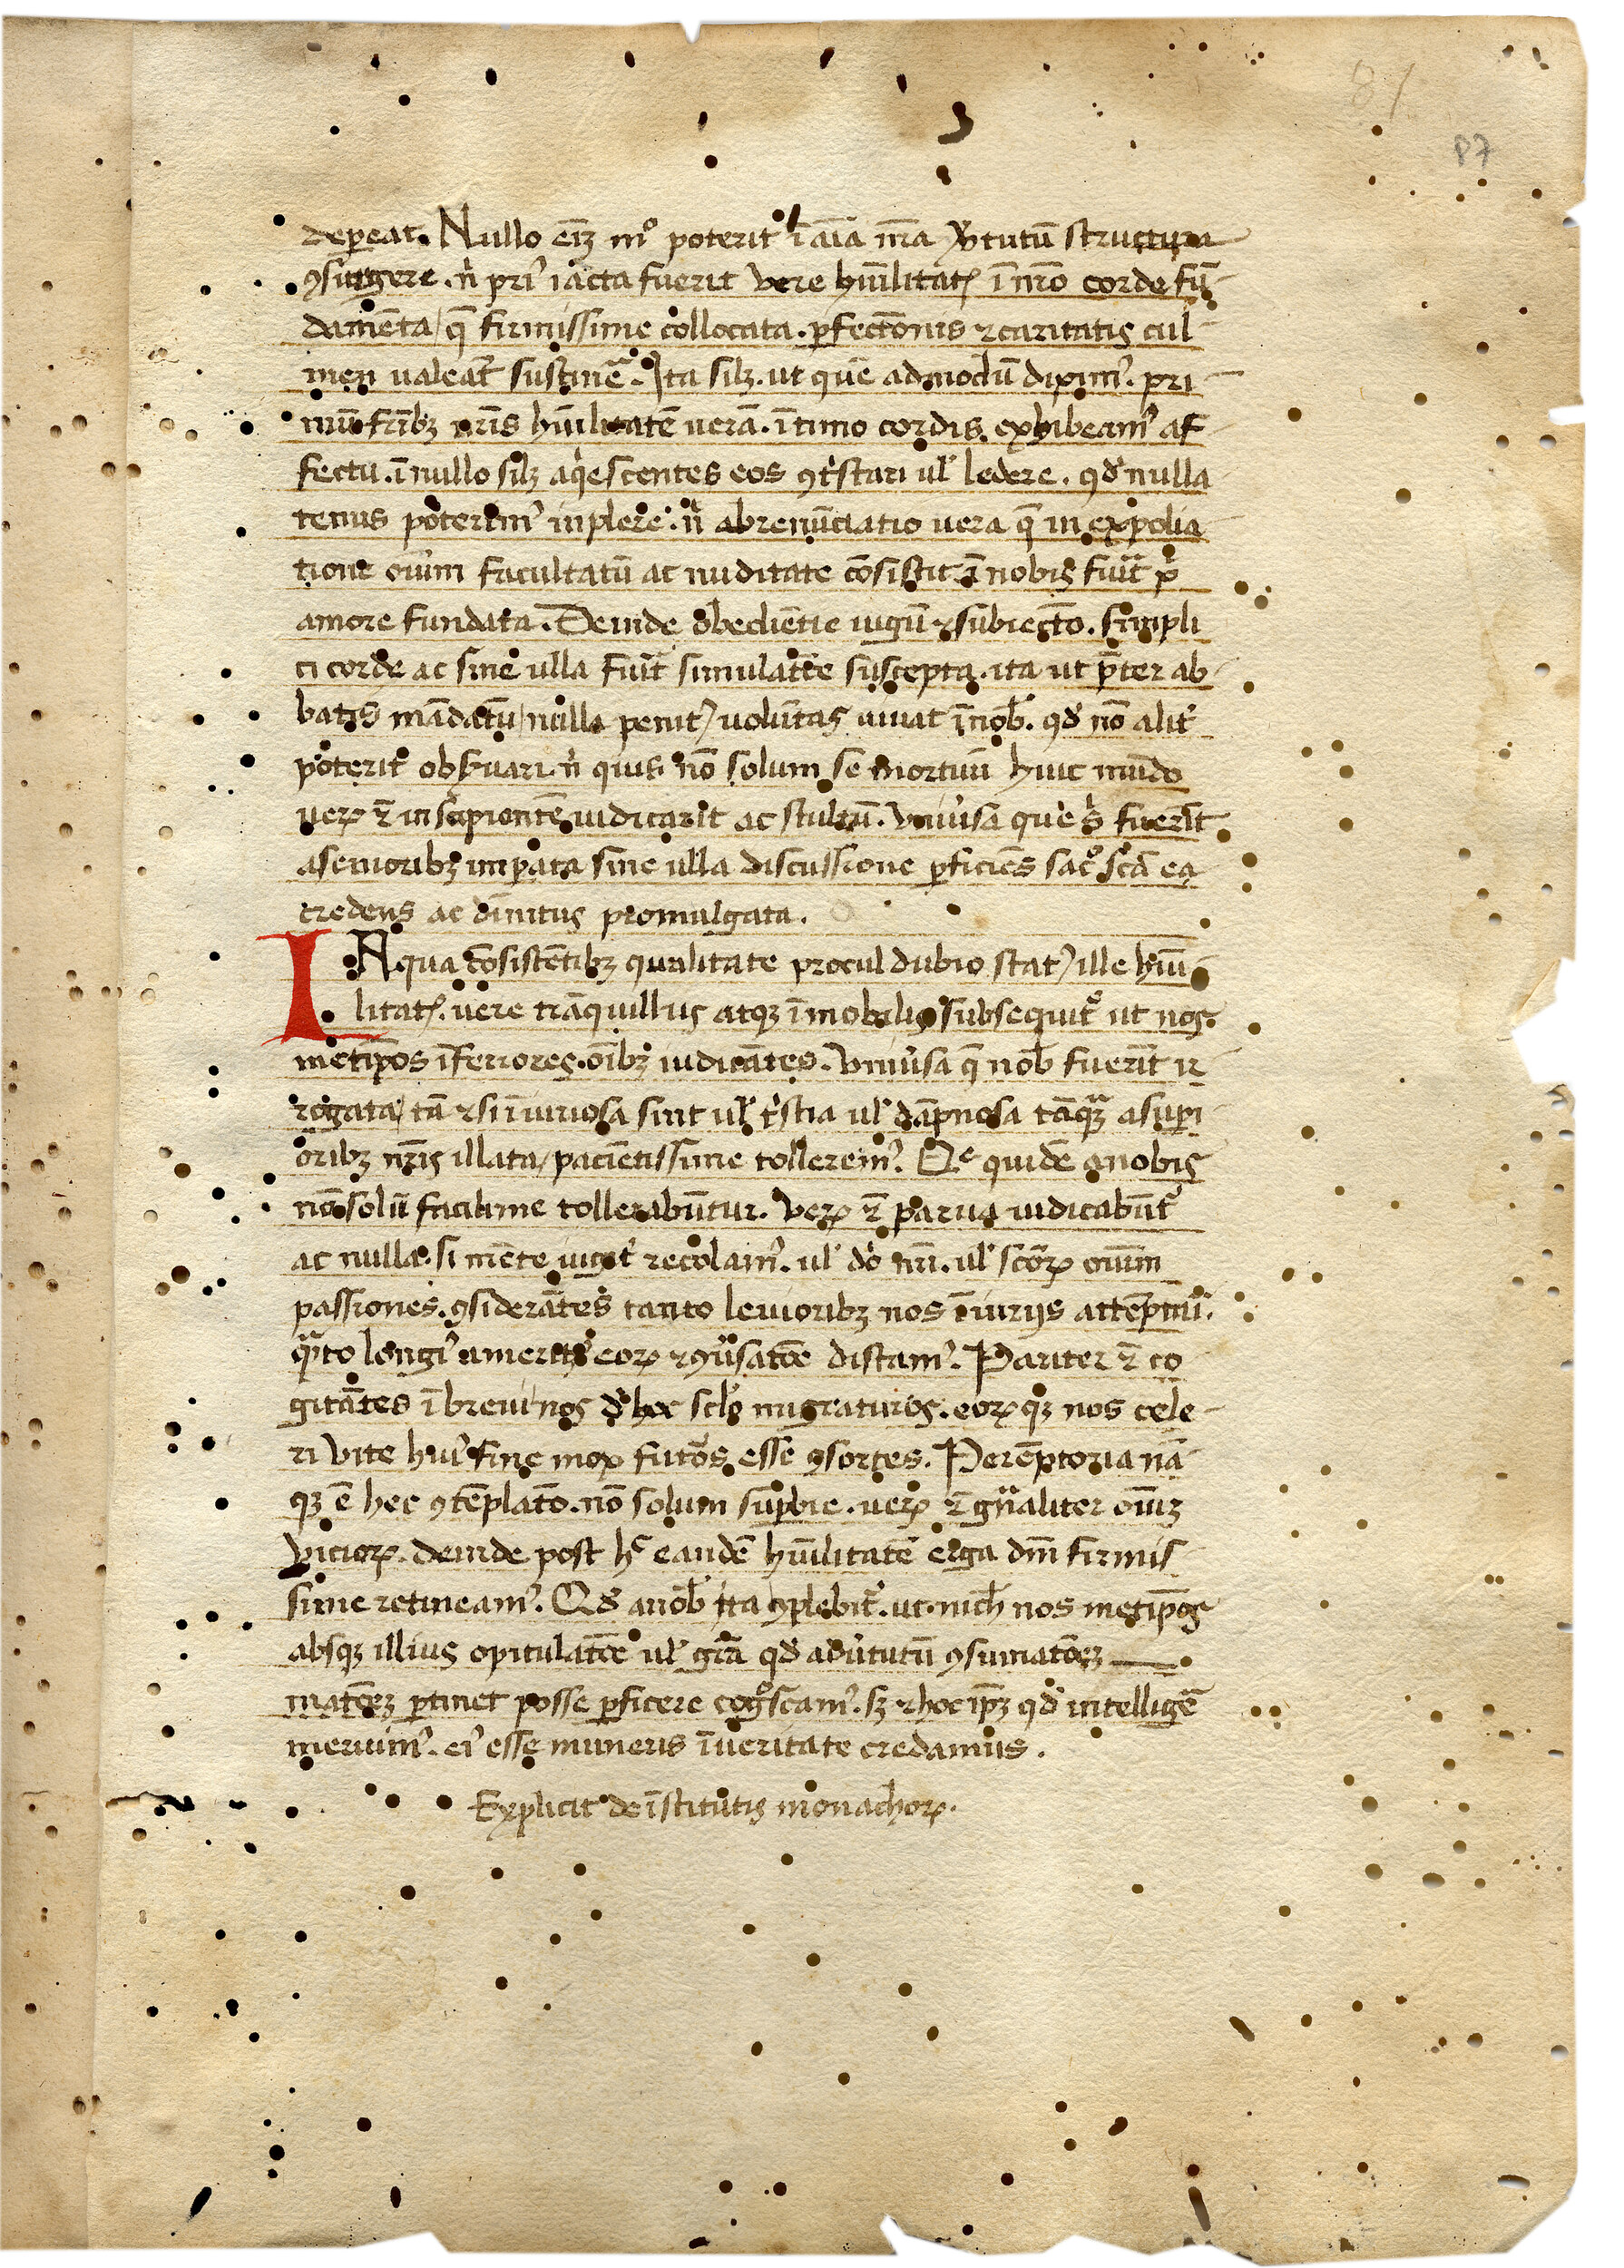 87
87
depeat. Nullo eīȝ mº poterit ī aīa nr̄a v̾tutū structura
ꝯsurgere. nͥ pri᾽ iacta fuerit vere hūilitatꝭ ī nr̄o corde fū
damēta / q̄ firmissime collocata. ꝑfectōnis ⁊ caritatis cul
men ualeāt sustinē. Ita silȝ. ut quē admodū diximꝰ. pri
mū fr̄ibȝ nr̄is hūilitatē uerā. ītimo cordis exhibeamꝰ af
fectu. ī nullo silȝ aqͥescentes eos ꝯtͥstari ul̓ ledere. qđ nulla
tenus poterimꝰ inplere. nͥ abrenūciatio uera q̄ in expolia
tione oīum facultatū ac nuditate cōsistit ī nobis fuīt p̱
amore fundata. Deinde obediētie iugū ⁊ subiectō. simpli
ci corde ac sine ulla fuīt simulatōe suscepta. ita ut p̄ter ab
batis mādatū / nulla penitꝰ uolūtas uiuat ī nob̄. qđ nō alit᾽
poterit obẜuari. nͥ quis nō solum se mortuū huic mūdo
ueꝝ ⁊̄ insipientē iudicarit ac stultū. Vniu᾽sa que sͥ fuerīt
a senioribȝ imꝑata sine ulla discussione ꝑficiēs sacºscā ea
credens ac diuītus promulgata.
IN qua cōsistētibȝ qualitate procul dubio statꝰ ille hūi
litatꝭ. uere trāquillus atqȝ īmobilis subsequit᾽ ut nos
metip̄os īferiores. oībȝ iudicātes. Vniu᾽sa q̄ nob̄ fuerīt ir
rogata / tā ⁊ si īiuriosa sint ul̓ tͥstia ul̓ dāpnosa tāqͣȝ a suꝑi
oribȝ nr̄is illata / paciētissime tolleremꝰ. Qᵉ quidē a nobis
nō solū facilime tollerabūtur. Veꝝ ⁊̄ parua iudicabūt᾽
ac nulla. si mēte iugit᾽ recolamꝰ. ul̓ dō nr̄i. ul̓ scōꝝ oīum
passiones. ꝯsiderātes tanto leuioribȝ nos īiuriis attēptari.
qͣto lōngiꝰ a meritis eoꝝ ⁊ ꝯu᾽satōe distamꝰ. Pariter ⁊̄ co
gitātes ī breui nos đ hoc scl̓o migraturos. eoꝝ qȝ nos cele
ri vite huiꝰ fine mox futōs esse ꝯsortes. Perēptoria nā
qȝ ē hec ꝯtēplatō. nō solum suꝑbie. ueꝝ ⁊̄ gn̄aliter oīuȝ
vicioꝝ. deinde post hᶜ eandē hūilitatē erga dm̄ firmis
sime retineamꝰ. Qđ a nob̄ ita ꝯplebit᾽. ut nich̄ nos metip̄os
absqȝ illius opitulatōe ul̓ gr̄a qđ ad u᾽tutū ꝯsumatōeȝ
matōeȝ ꝑtinet posse ꝑficere cogͦscamꝰ. sȝ ⁊ hoc ip̄ȝ qđ intelligē
meruimꝰ. eiꝰ esse muneris ī ueritate credamus.
Explicit de īstitutis monachoꝝ.